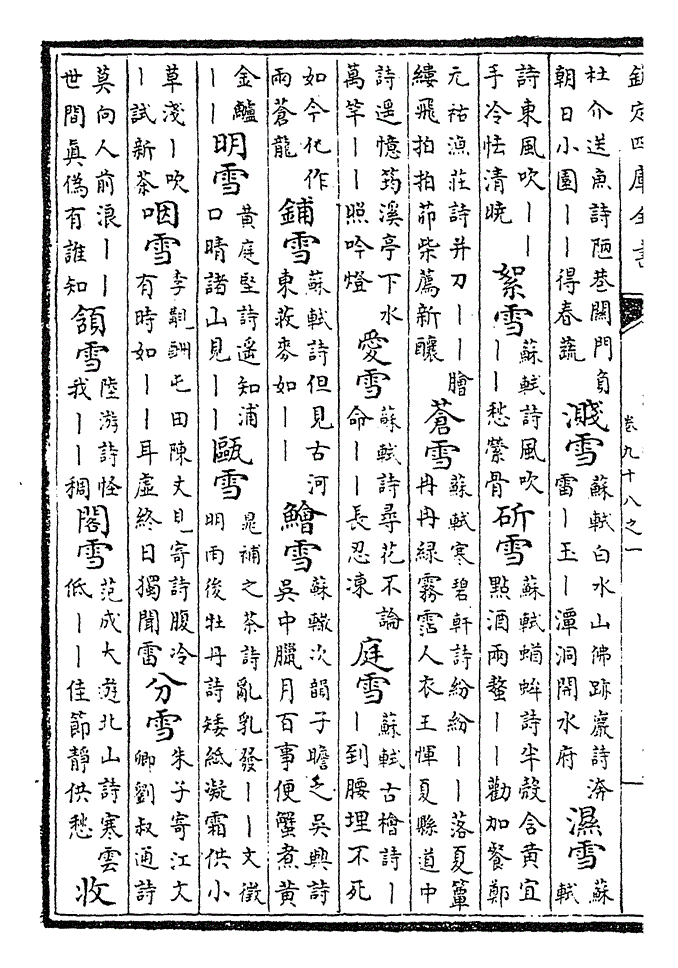 欽定四庫全書 卷九十八之一
杜介送魚詩陋巷關門負朝日小園丨丨得春蔬 濺雪 蘇軾白水山佛跡巖詩渀雷丨玉丨潭洞開水府 濕雪 蘇軾
詩東風吹丨丨手冷怯清曉 絮雪 蘇軾詩風吹丨丨愁縈骨 斫雪 蘇軾蝤蛑詩半殻含黄宜點酒兩螯丨丨勸加餐鄭
元祐漁莊詩并刀丨丨膾縷飛拍拍茆柴薦新釀 蒼雪 蘇軾寒碧軒詩紛紛丨丨落夏簟冉冉綠霧霑人衣王惲夏縣道中
詩遥憶筠溪亭下水萬竿丨丨照吟燈 愛雪 蘇軾詩尋花不論命丨丨長忍凍 庭雪 蘇軾古檜詩丨丨到腰埋不死
如今化作兩蒼龍 鋪雪 蘇軾詩但見古河東蕎麥如丨丨 鱠雪 蘇轍次韻子瞻乞吳興詩吳中臘月百事便蟹煮黄
金鱸丨丨 明雪 黄庭堅詩遥知浦口晴諸山見丨丨 甌雪 晁補之茶詩亂乳發丨丨文徵明雨後牡丹詩矮紙凝霜供小
草淺丨吹丨試新茶 咽雪 李覯酬屯田陳丈見寄詩腹冷有時如丨丨耳虚終日獨聞雷 分雪 朱子寄江文卿劉叔通詩
莫向人前浪丨丨世間真偽有誰知 頷雪 陸游詩怪我丨丨稠 閣雪 范成大遊北山詩寒雲低丨丨佳節靜供愁 收